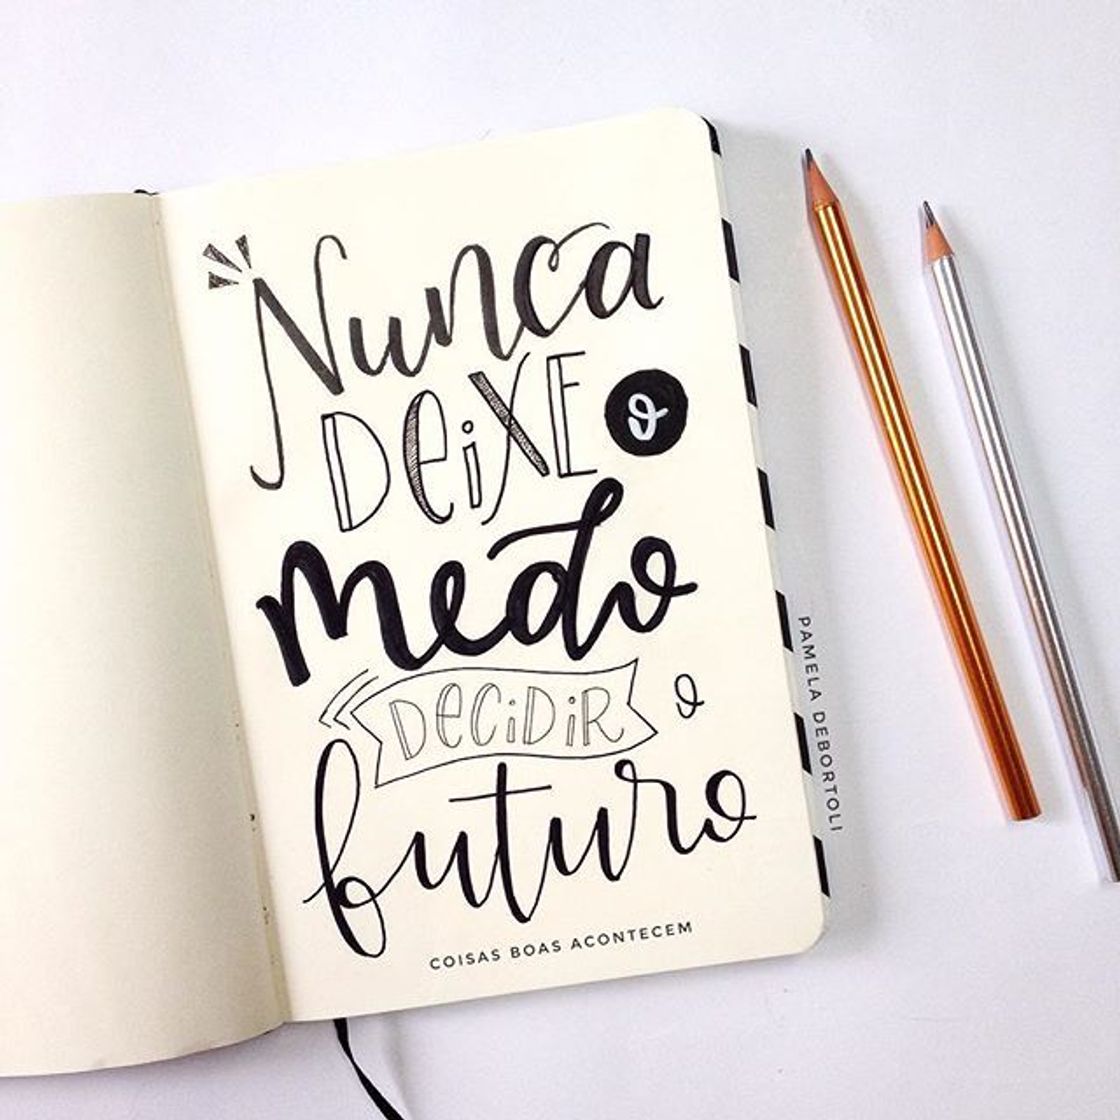 Nunca
DeiXE o
medo
DeCiDiR o
futuro
COISAS BOAS ACONTECEM
PAMELA DEBORTOLI